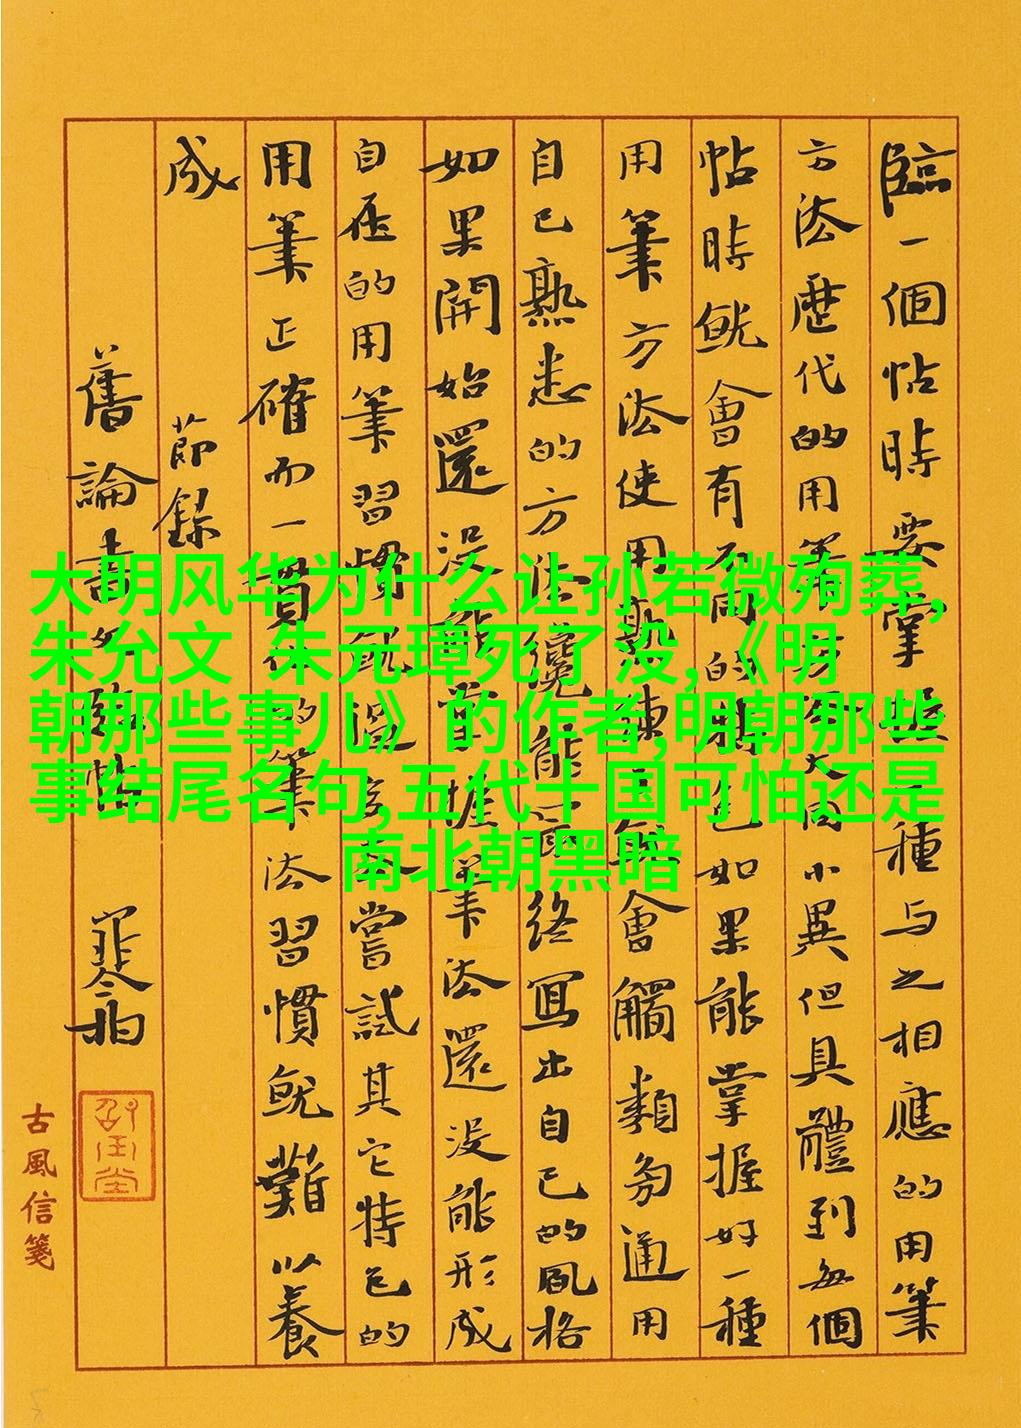 大明风华为什么让孙若微殉葬,
朱允文 朱元璋死了没,《明
朝那些事儿》的作者,明朝那些
事结尾名句,五代十国可怕还是
南北朝黑暗
臨一個帖時要掌握一種与之相應的用筆
方法歷代的用筆方法大同小異但具體到每個
帖時就會有不同的特色如果能掌握好一種
用筆方法使用熟練了就會觸類旁通用
自己熟悉的方法纔能最終寫出自己的風格
如果開始還没能掌握筆法還没能形成
自在的用筆習慣就過多去嘗試其它特色的
用筆正確而一貫的筆法習慣就難以養
成 節録
舊論書文臨帖
古風信箋